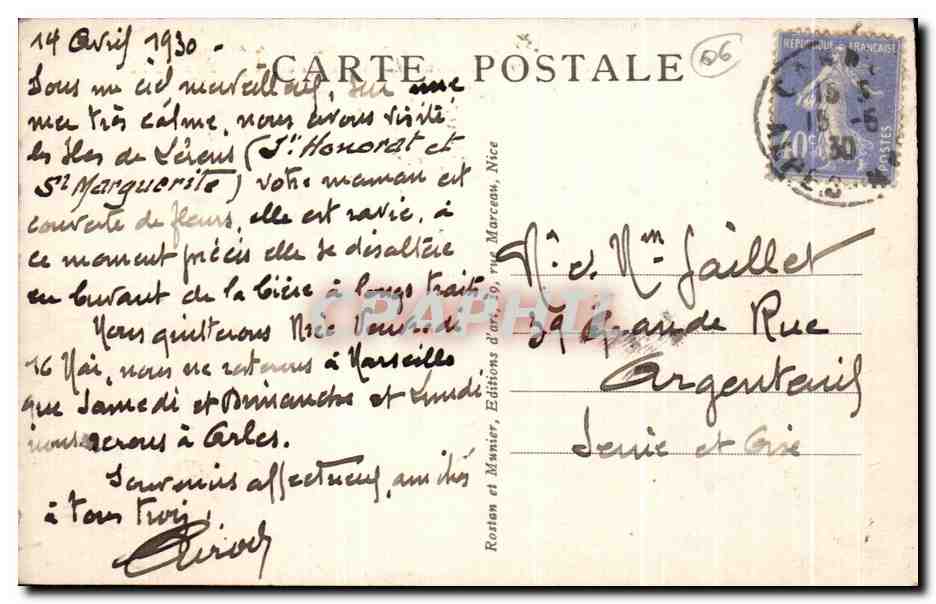 14 Avril 1930 -
CARTE POSTALE
06
Sous un ciel merveilleux, sur une
mer très calme, nous avons visité
les îles de Lérens (St Honorat et
St Marguerite) votre maman est
couverte de fleurs, elle est ravie, à
ce moment précis elle se désaltère
en buvant de la bière à longs traits.
Nous quitterons Nice Vendredi
16 Mai, nous ne resterons à Marseille
que Samedi et Dimanche et Lundi
nous serons à Arles.
Souvenirs affectueux, amitiés
à tous trois.
Rostan et Munier, Editions d'art, 19, rue Marceau, Nice
REPUBLIQUE FRANÇAISE
40c
POSTES
15
15 -5
30
Mr et Mme Jaillet
39 Grande Rue
Argenteuil
Seine et Oise
CPAPHIL